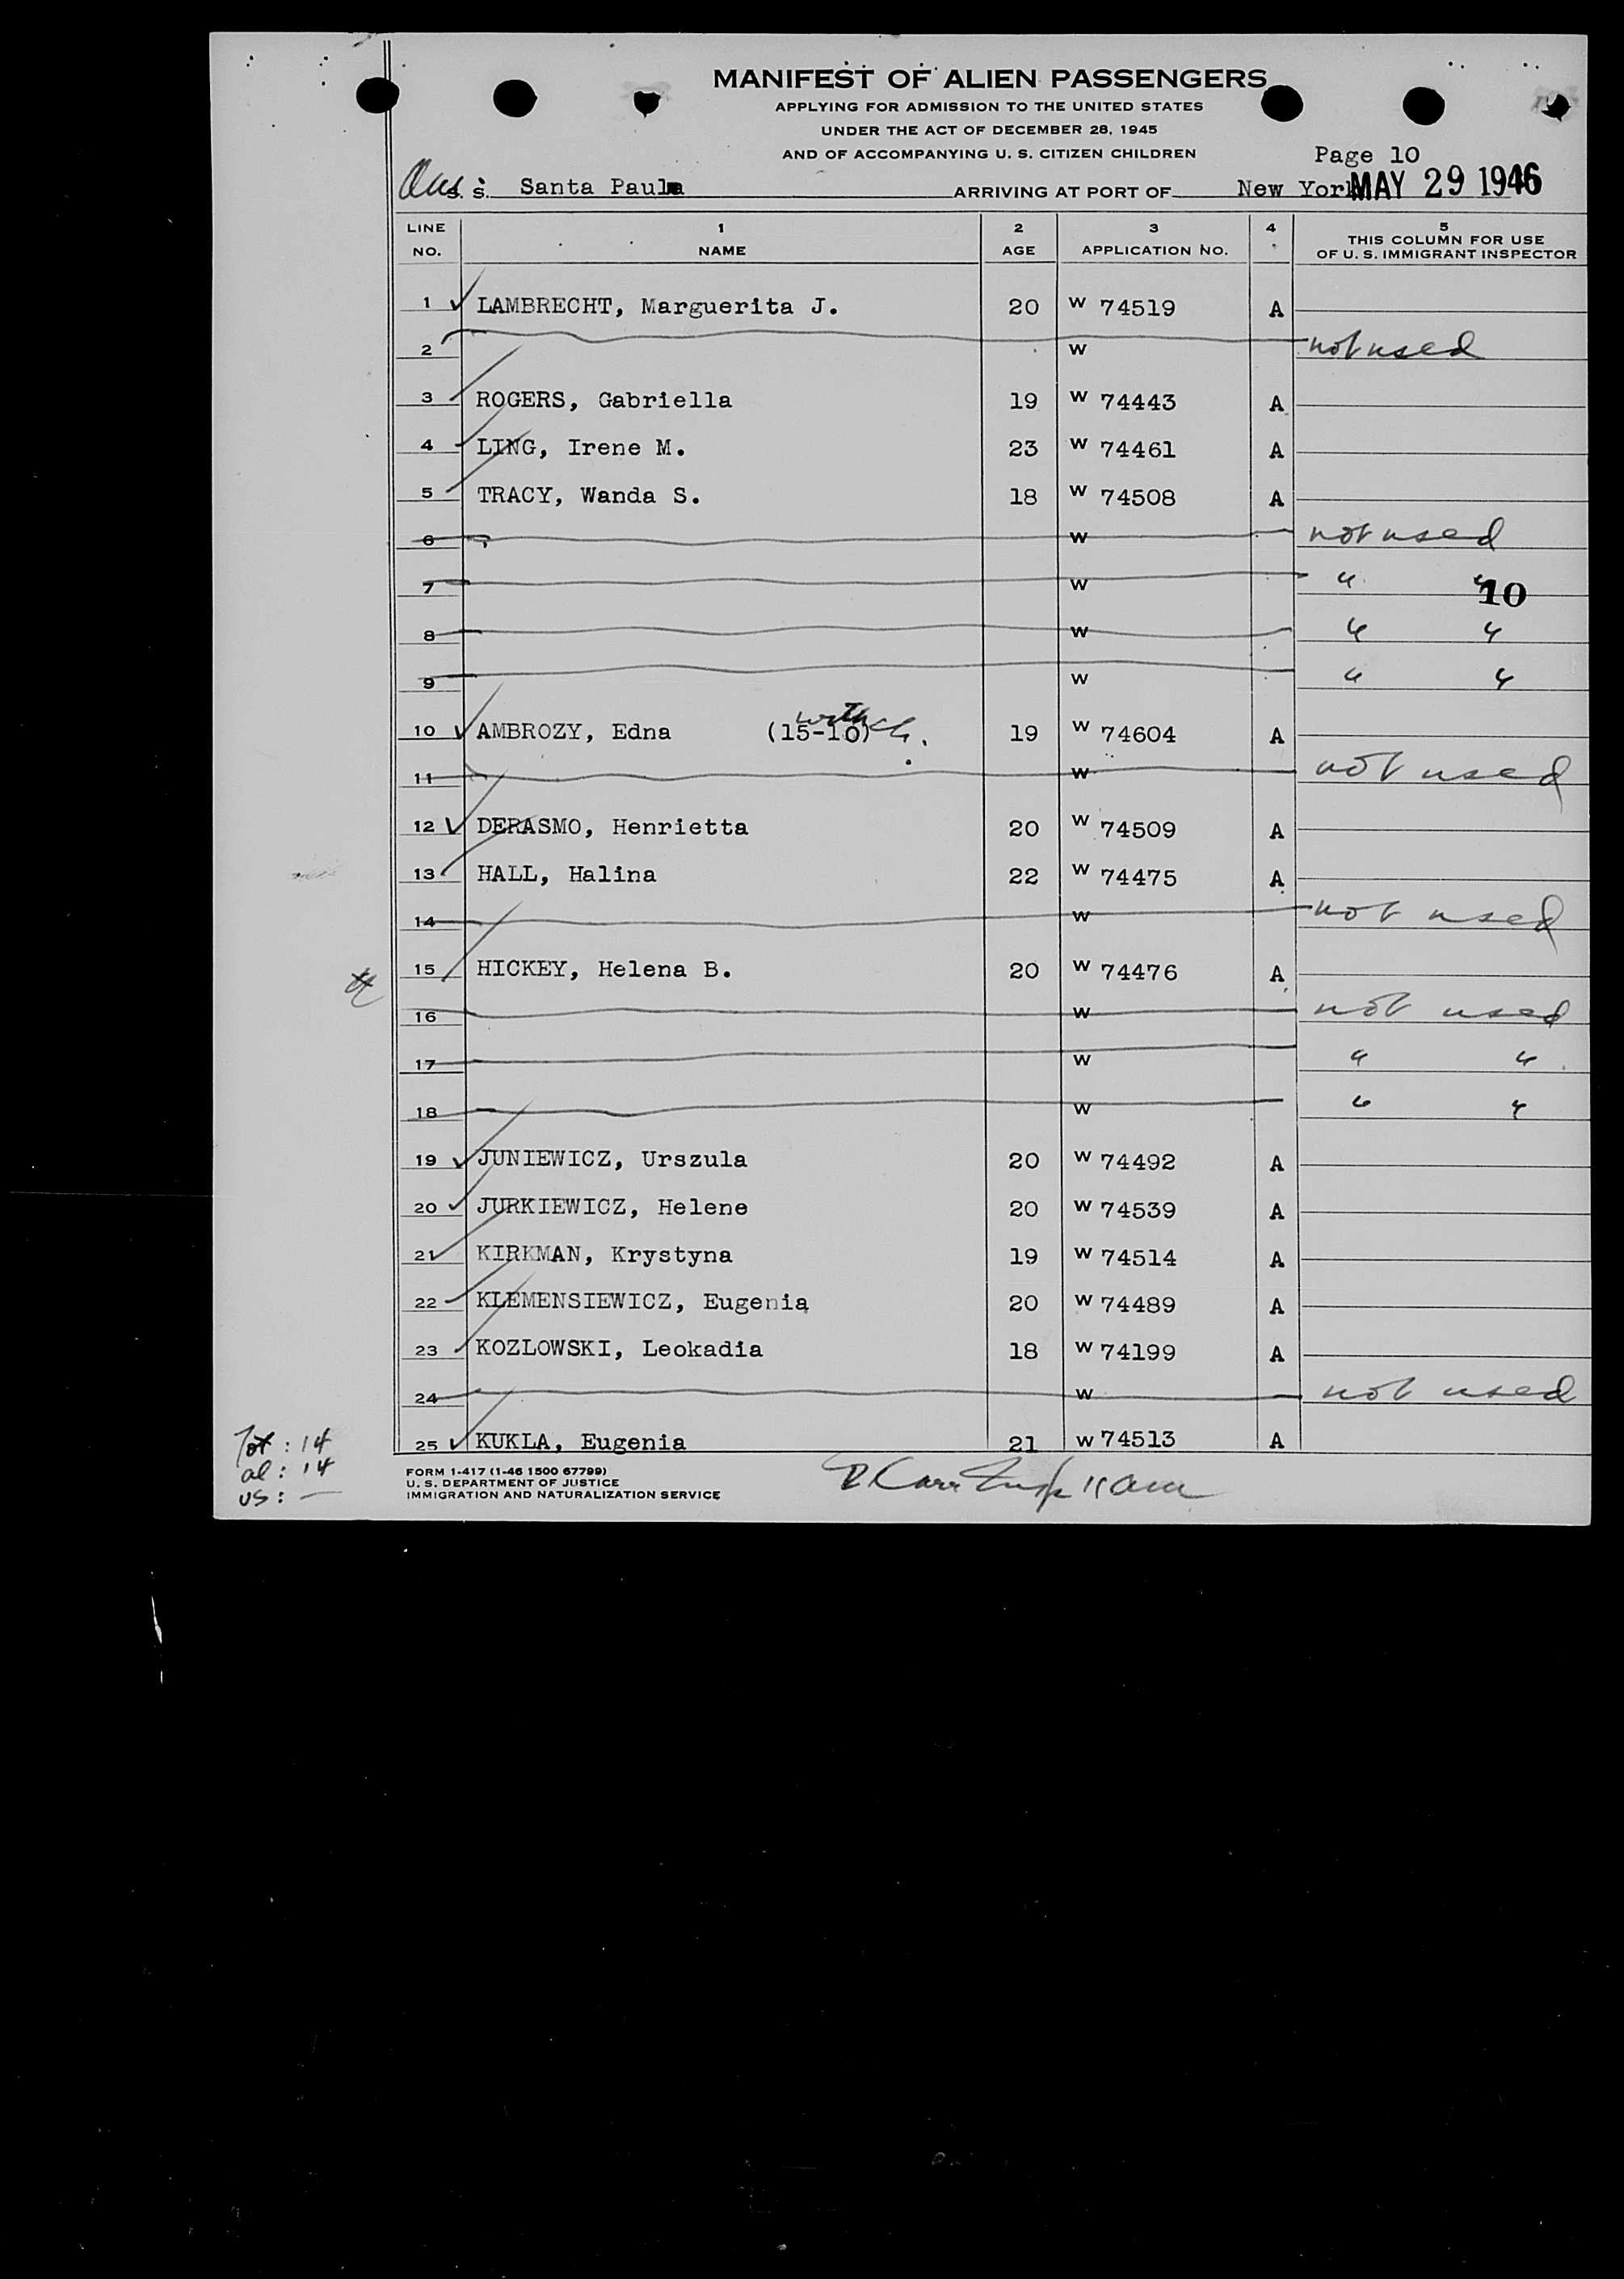 MANIFEST OF ALIEN PASSENGERS
APPLYING FOR ADMISSION TO THE UNITED STATES
UNDER THE ACT OF DECEMBER 28, 1945
AND OF ACCOMPANYING U. S. CITIZEN CHILDREN
Page 10
S. S. Santa Paula ARRIVING AT PORT OF New York MAY 29 1946
LINE NO. 1 NAME 2 AGE 3 APPLICATION NO. 4 5 THIS COLUMN FOR USE OF U. S. IMMIGRANT INSPECTOR
1 LAMBRECHT, Marguerita J. 20 W 74519 A
2 W not used
3 ROGERS, Gabriella 19 W 74443 A
4 LING, Irene M. 23 W 74461 A
5 TRACY, Wanda S. 18 W 74508 A
6 W not used
7 W " " 10
8 W " "
9 W " "
10 AMBROZY, Edna (15-10) with ch. 19 W 74604 A
11 W not used
12 DERASMO, Henrietta 20 W 74509 A
13 HALL, Halina 22 W 74475 A
14 W not used
15 HICKEY, Helena B. 20 W 74476 A
16 W not used
17 W " "
18 W " "
19 JUNIEWICZ, Urszula 20 W 74492 A
20 JURKIEWICZ, Helene 20 W 74539 A
21 KIRKMAN, Krystyna 19 W 74514 A
22 KLEMENSIEWICZ, Eugenia 20 W 74489 A
23 KOZLOWSKI, Leokadia 18 W 74199 A
24 W not used
25 KUKLA, Eugenia 21 W 74513 A
Tot : 14
al : 14
US : —
FORM 1-417 (1-46 1500 67799)
U. S. DEPARTMENT OF JUSTICE
IMMIGRATION AND NATURALIZATION SERVICE